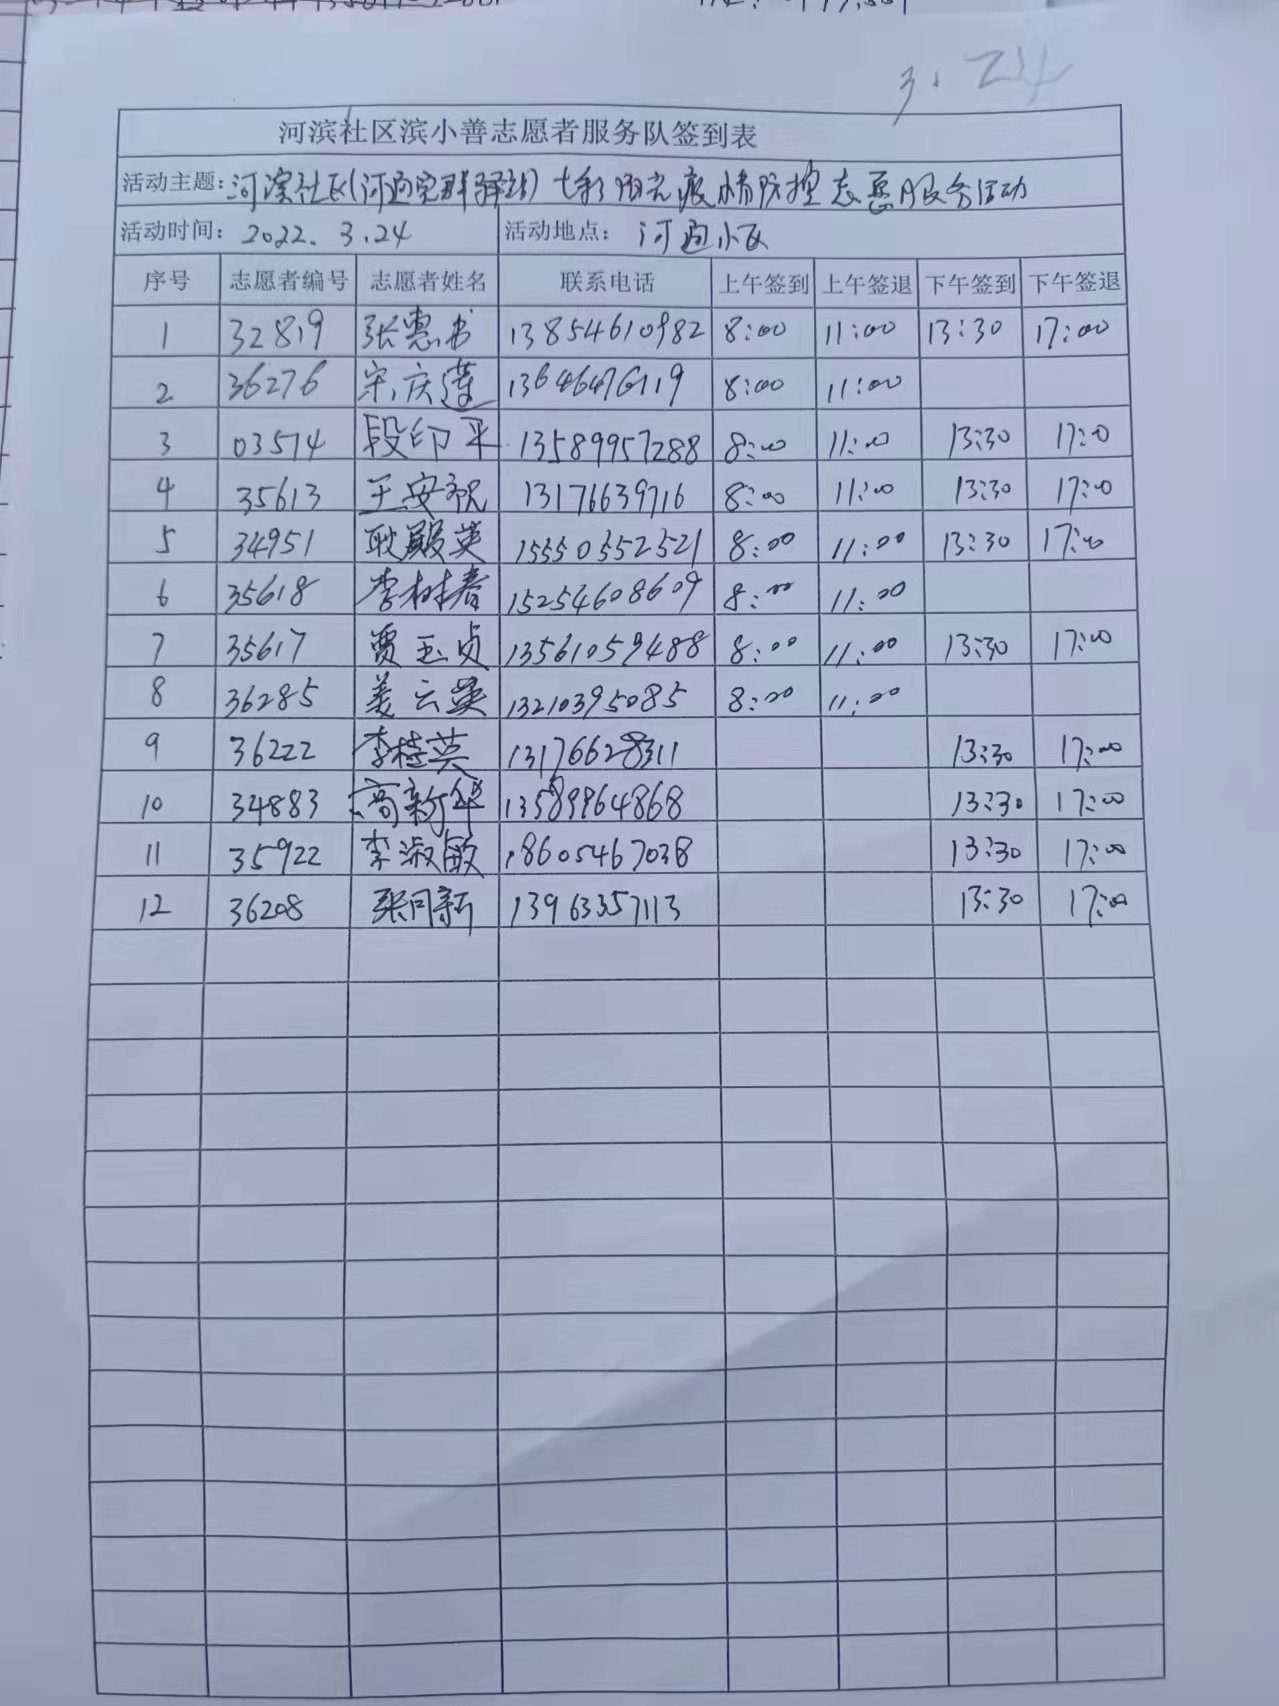 3.24
河滨社区滨小善志愿者服务队签到表
活动主题:河滨社区(河通党群驿站)七彩阳光疫情防控志愿服务活动
活动时间: 2022.3.24 活动地点: 河通小区
序号 志愿者编号 志愿者姓名 联系电话 上午签到 上午签退 下午签到 下午签退
1 32819 张惠书 13854610982 8:00 11:00 13:30 17:00
2 36276 宋庆莲 13646476119 8:00 11:00
3 03574 段印平 13589957288 8:00 11:00 13:30 17:00
4 35613 王安祝 13176639716 8:00 11:00 13:30 17:00
5 34951 耿殿英 15550352521 8:00 11:00 13:30 17:00
6 35618 李树春 15254608609 8:00 11:00
7 35617 贾玉贞 13561059488 8:00 11:00 13:30 17:00
8 36285 姜云英 13210395085 8:00 11:00
9 36222 李桂英 13176628311 13:30 17:00
10 34883 高新华 13589964868 13:30 17:00
11 35922 李淑敏 18605467038 13:30 17:00
12 36208 13963357113 13:30 17:00